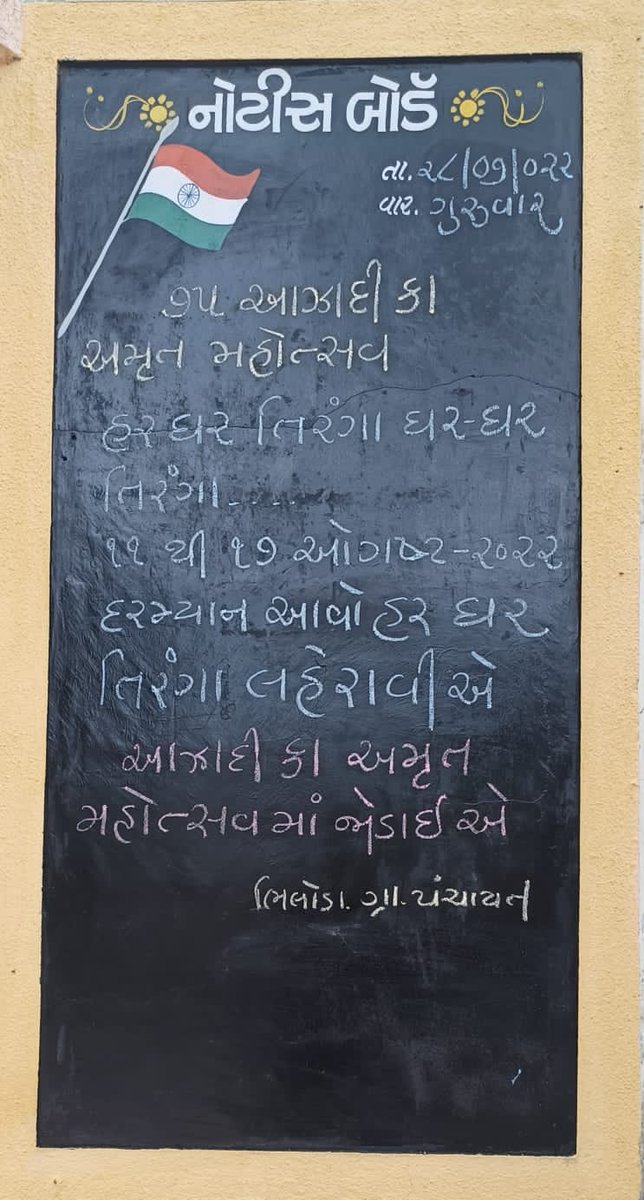 નોટીસ બોર્ડ
તા. ૨૮/૦૭/૦૨૨
વાર. ગુરુવાર
૭૫ આઝાદી કા
અમૃત મહોત્સવ
હર ઘર તિરંગા ઘર-ઘર
તિરંગા......
૧૧ થી ૧૭ ઓગષ્ટ-૨૦૨૨
દરમ્યાન આવો હર ઘર
તિરંગા લહેરાવીએ
આઝાદી કા અમૃત
મહોત્સવમાં જોડાઈએ
ભિલોડા. ગ્રા. પંચાયત